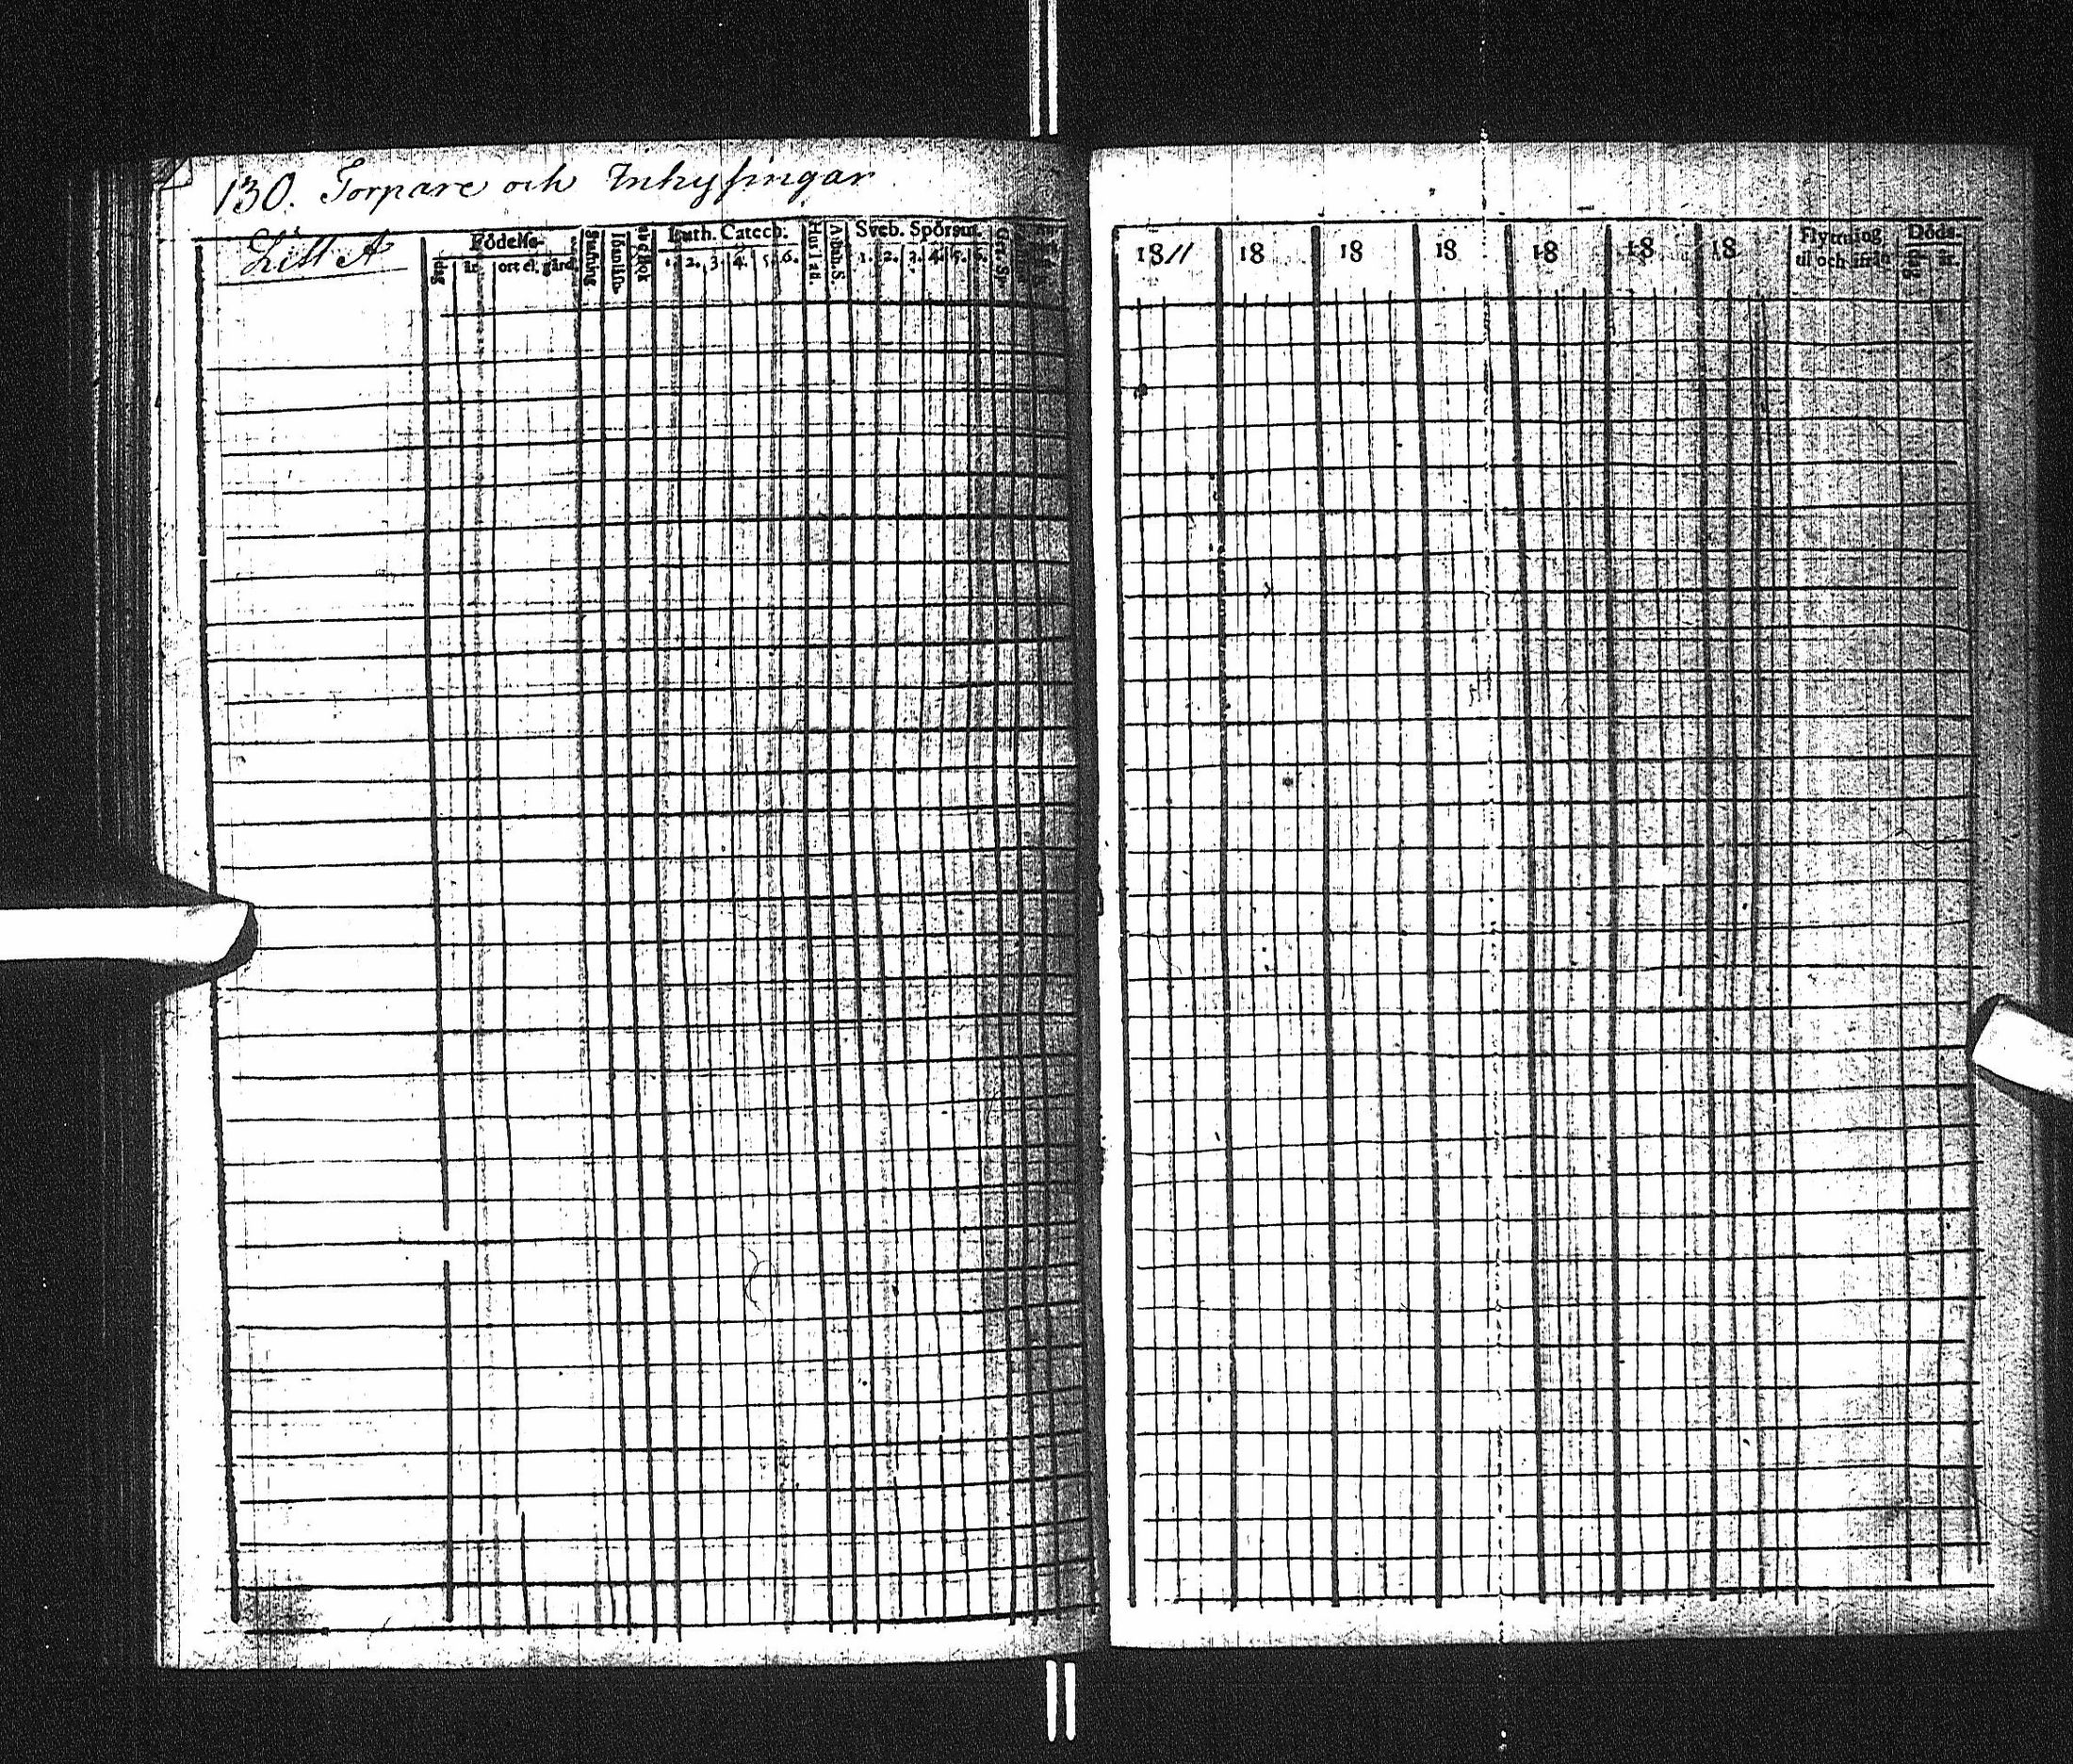 130. Torpare och Inhysingar
Litt A
Födelse- Luth. Catech. Sveb. Spörsm.
dag år ort el. gård. 1. 2. 3. 4. 5. 6. 1. 2. 3. 4. 5. 6.
1811 18 18 18 18 18 18 Flyttning til och ifrån Döds-
dag år.